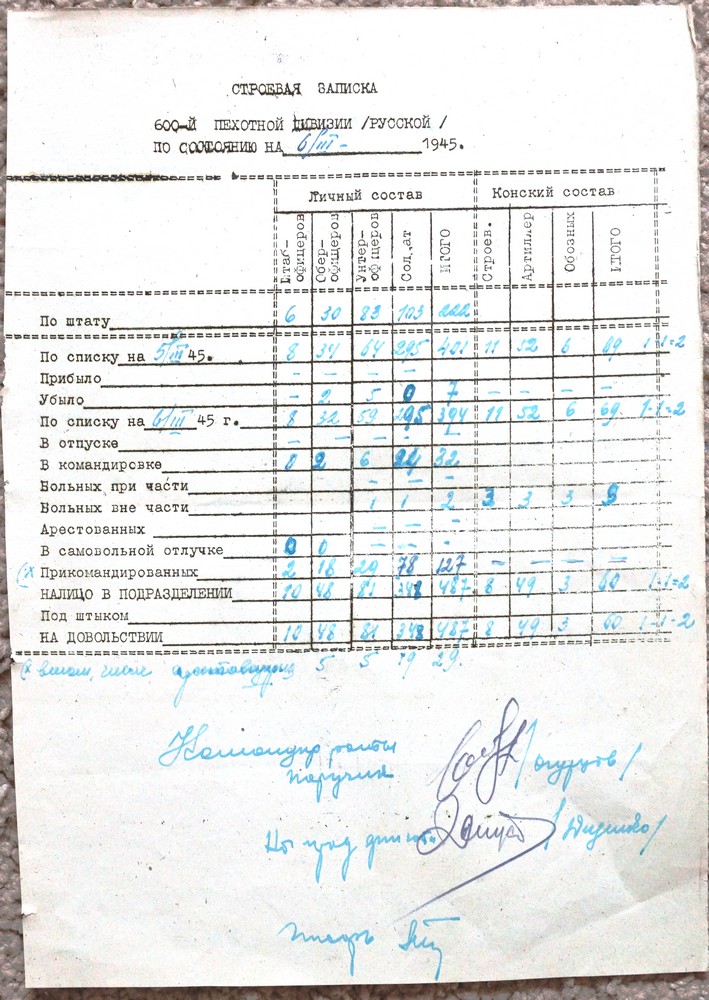 СТРОЕВАЯ ЗАПИСКА
600-Й ПЕХОТНОЙ ДИВИЗИИ /РУССКОЙ /
ПО СОСТОЯНИЮ НА 6/III - 1945.
Личный состав Конский состав
Штаб-офицеров Обер-офицеров Унтер-офицеров Солдат ИТОГО Строев. Артиллер Обозных ИТОГО
По штату 6 30 83 103 222
По списку на 5/III 45. 8 34 64 295 401 11 52 6 69 1-1=2
Прибыло – – – – –
Убыло – 2 5 0 7 – – – –
По списку на 6/III 45 г. 8 32 59 295 394 11 52 6 69. 1-1=2
В отпуске – – – – –
В командировке 0 2 6 24 32
Больных при части – – –
Больных вне части 1 1 2 3 3 3 9
Арестованных – – –
В самовольной отлучке 0 0 – – –
(х Прикомандированных 2 18 29 78 127 – – – =
НАЛИЦО В ПОДРАЗДЕЛЕНИИ 10 48 81 348 487 8 49 3 60 1-1=2
Под штыком
НА ДОВОЛЬСТВИИ 10 48 81 348 487 8 49 3 60 1-1-2
(х в том числе 5 5 19 29.
Командир роты
поручик
писарь